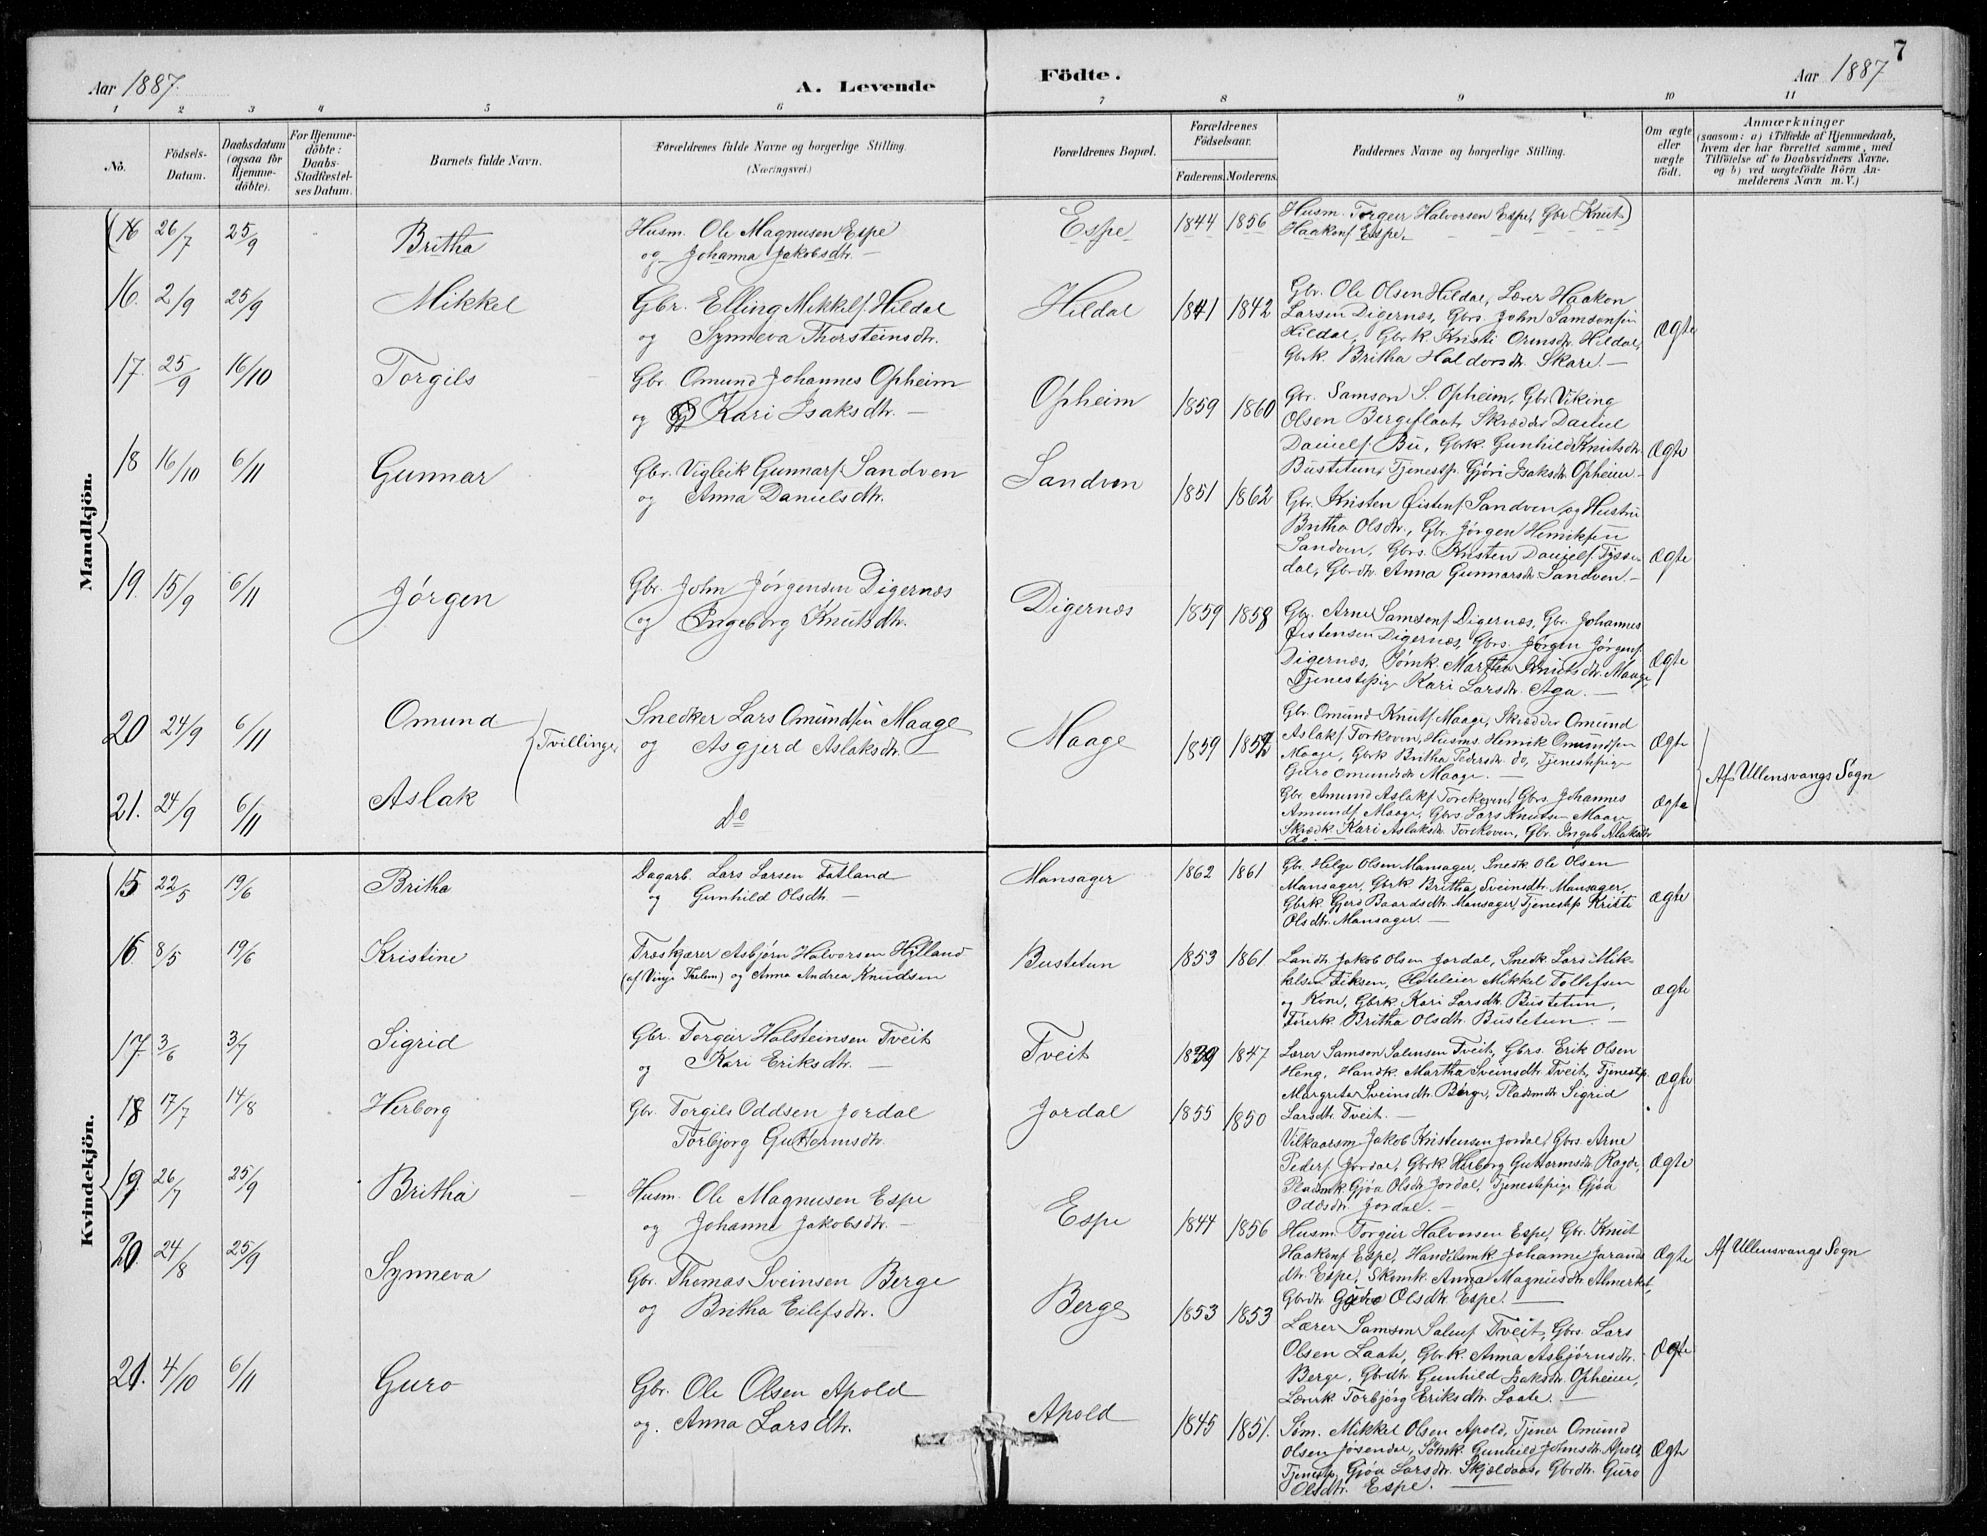 7
Aar 1887.
A. Levende
Födte.
Aar 1887
1 2 3 4 5 6 7 8 9 10 11
No.
Födsels-
Datum.
Daabsdatum
(ogsaa for
Hjemme-
döbte).
For Hjemme-
döbte:
Daabs-
Stadfæstel-
ses Datum.
Barnets fulde Navn.
Forældrenes fulde Navne og borgerlige Stilling.
(Næringsvei.)
Forældrenes Bopæl.
Forældrenes
Födselsaar.
Faderens. Moderens.
Faddernes Navne og borgerlige Stilling.
Om ægte
eller
uægte
födt.
Anmærkninger
(saasom: a) i Tilfælde af Hjemmedaab,
hvem der har forrettet samme, med
Tilföielse af to Daabsvidners Navne,
og b) ved uægtefödte Börn An-
melderens Navn m. V.)
Mandkjön.
(16 26/7 25/9 Britha Husm. Ole Magnusen Espe
og Johanna Jakobsdtr. —
Espe 1844 1856 Husm. Torgeir Halvorsen Espe, Gbr Knut)
Haakons Espe.
16. 2/9 25/9 Mikkel Gbr. Elling Mikkels. Hildal
og Synneva Thorsteinsdtr.
Hildal 1841 1842 Gbr. Ole Olsen Hildal, Lærer Haakon
Larsen Digernæs, Gbrs. John Samsonsen
Hildal, Gbrk. Kristi Ormsdtr. Hildal,
Gbrk. Britha Haldorsdtr. Skare. —
Ægte
17. 25/9 16/10 Torgils Gbr. Omund Johannes Opheim
og Kari Isaksdtr. —
Opheim 1859 1860 Gbr. Samson S. Opheim, Gbr. Viking
Olsen Bergeflaat, Skrædder Daniel
Daniels. Bu, Gbrk. Gunhild Knutsdtr.
Bustetun, Tjenestp. Gjöri Isaksdtr. Opheim. —
Ægte
18 16/10 6/11 Gunnar Gbr. Vigleik Gunnars. Sandven
og Anna Danielsdtr.
Sandven 1851 1862 Gbr. Kristen Østens. Sandven og Hustru
Britha Olsdtr., Gbr. Jørgen Henriksen
Sandven, Gbrs. Kristen Daniels. Tysse-
dal, Gbrdtr. Anna Gunnarsdtr. Sandven. —
Ægte
19. 15/9 6/11 Jørgen Gbr. John Jørgensen Digernæs
og Ingeborg Knutsdtr.
Digernæs 1859 1858 Gbr. Arne Samsons. Digernæs, Gbr. Johannes
Østensen Digernæs, Gbrs. Jørgen Jørgens.
Digernæs, Martha Knutsdtr. Maage,
Tjenestepige Kari Larsdtr. Aga. —
Ægte
20 24/9 6/11 Omund Tvillinger Snedker Lars Omundsen Maage
og Asgjerd Aslaksdtr. —
Maage 1859 Gbr. Omund Knuts. Maage, Skrædder Omund
Aslaks. Torkoven, Husms. Henrik Omundsen
Maage, Gbrk Britha Pedersdtr. do, Tjenestepige
Guro Omundsdtr Maage. —
Ægte
Af Ullensvangs Sogn
21. 24/9 6/11 Aslak Do
Gbr. Amund Aslaks. Torekoven, Gbrs. Johannes
Amunds. Maage, Gbrs Lars Knutsen Maage
Skrædk. Kari Aslaksdtr. Torekoven, Gbr. Ingeb. Aslaksdtr
do. —
Ægte
Kvindekjön.
15 22/5 19/6 Britha Dagarb. Lars Larsen Fatland
og Gunhild Olsdtr. —
Mansager 1862 1861 Gbr. Helge Olsen Mansager, Snedk Ole Olsen
Mansager, Gbrk Britha Sveinsdtr. Mansager,
Gbrk Gjerd Baardsdtr Mansager, Tjenestp Kristi
Olsdtr. Mansager. —
Ægte
16. 8/5 19/6 Kristine Træskjærer Asbjørn Halvorsen Hylland
(af Vinje Thelem) og Anna Andrea Knudsen
Bustetun 1853 1861 Landh. Jakob Olsen Jordal, Snedk. Lars Mik-
kelsen Eiksen, Hoteleier Mikkel Tollefsen
og Kone, Gbrk. Kari Larsdtr. Bustetun,
Førerk. Britha Olsdtr. Bustetun. —
Ægte
17. 3/6 3/7 Sigrid Gbr. Torgeir Halsteinsen Tveit
og Kari Eriksdtr. —
Tveit 1847 Lærer Samson Salmsen Tveit, Gbrs. Erik Olsen
Heng, Handk. Martha Sveinsdtr. Tveit, Tjenestp.
Margreta Sveinsdtr. Berge, Sigrid
Larsdtr. Tveit. —
Ægte
18 17/7 14/8 Herborg Gbr. Torgils Oddsen Jordal
Torbjørg Guttormsdtr.
Jordal 1855 1850
Vilkaarsm Jakob Kristensen Jordal, Gbrs Arne
Peders. Jordal, Gbrk Herborg Guttormsdtr. Ragde,
Gjøa Olsdtr. Jordal, Tjenestepige Gjøa
Oddsdtr. Jordal. —
Ægte
19. 26/7 25/9 Britha Husm. Ole Magnusen Espe
og Johanne Jakobsdtr. —
Espe 1844 1856 Husm. Torgeir Halvorsen Espe, Gbr. Knut
Haakons Espe, Handelsmk. Johanne Jarands
dtr. Espe, Skomk. Anna Magnusdtr Almerket,
Gbrdtr. Olsdtr. Espe. —
Ægte
Af Ullensvangs Sogn
20. 24/8 25/9 Synneva Gbr. Thomas Sveinsen Berge
og Britha Eilefsdtr.
Berge 1853 1853 Lærer Samson Salms. Tveit, Gbrs. Lars
Olsen Laate, Gbrk. Anna Asbjørnsdtr.
Berge, Gbrdtr. Gunhild Isaksdtr. Opheim,
Lærerk Torbjørg Eriksdtr. Laate. —
Ægte
21. 4/10 6/11 Guro Gbr. Ole Olsen Apold
og Anna Larsdtr.
Apold 1845 1851. Søm. Mikkel Olsen Apold, Tjener Omund
Olsen Jøsendal, Sømk. Gunhild Johnsdtr. Apold,
Tjenestp. Gjøa Larsdtr. Skjældaas, Gbrdtr. Guro
Olsdtr. Espe. —
Ægte